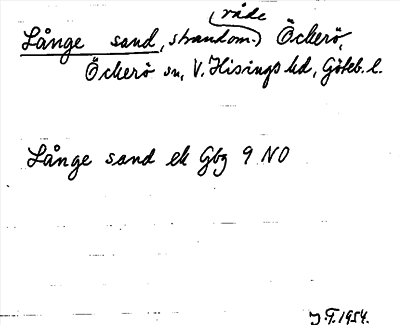 Långe sand, strandområde) Öckerö,
Öckerö sn, V. Hisings hd, Göteb. l.
Långe sand ek Gbg 9 NO
J.T. 1954.